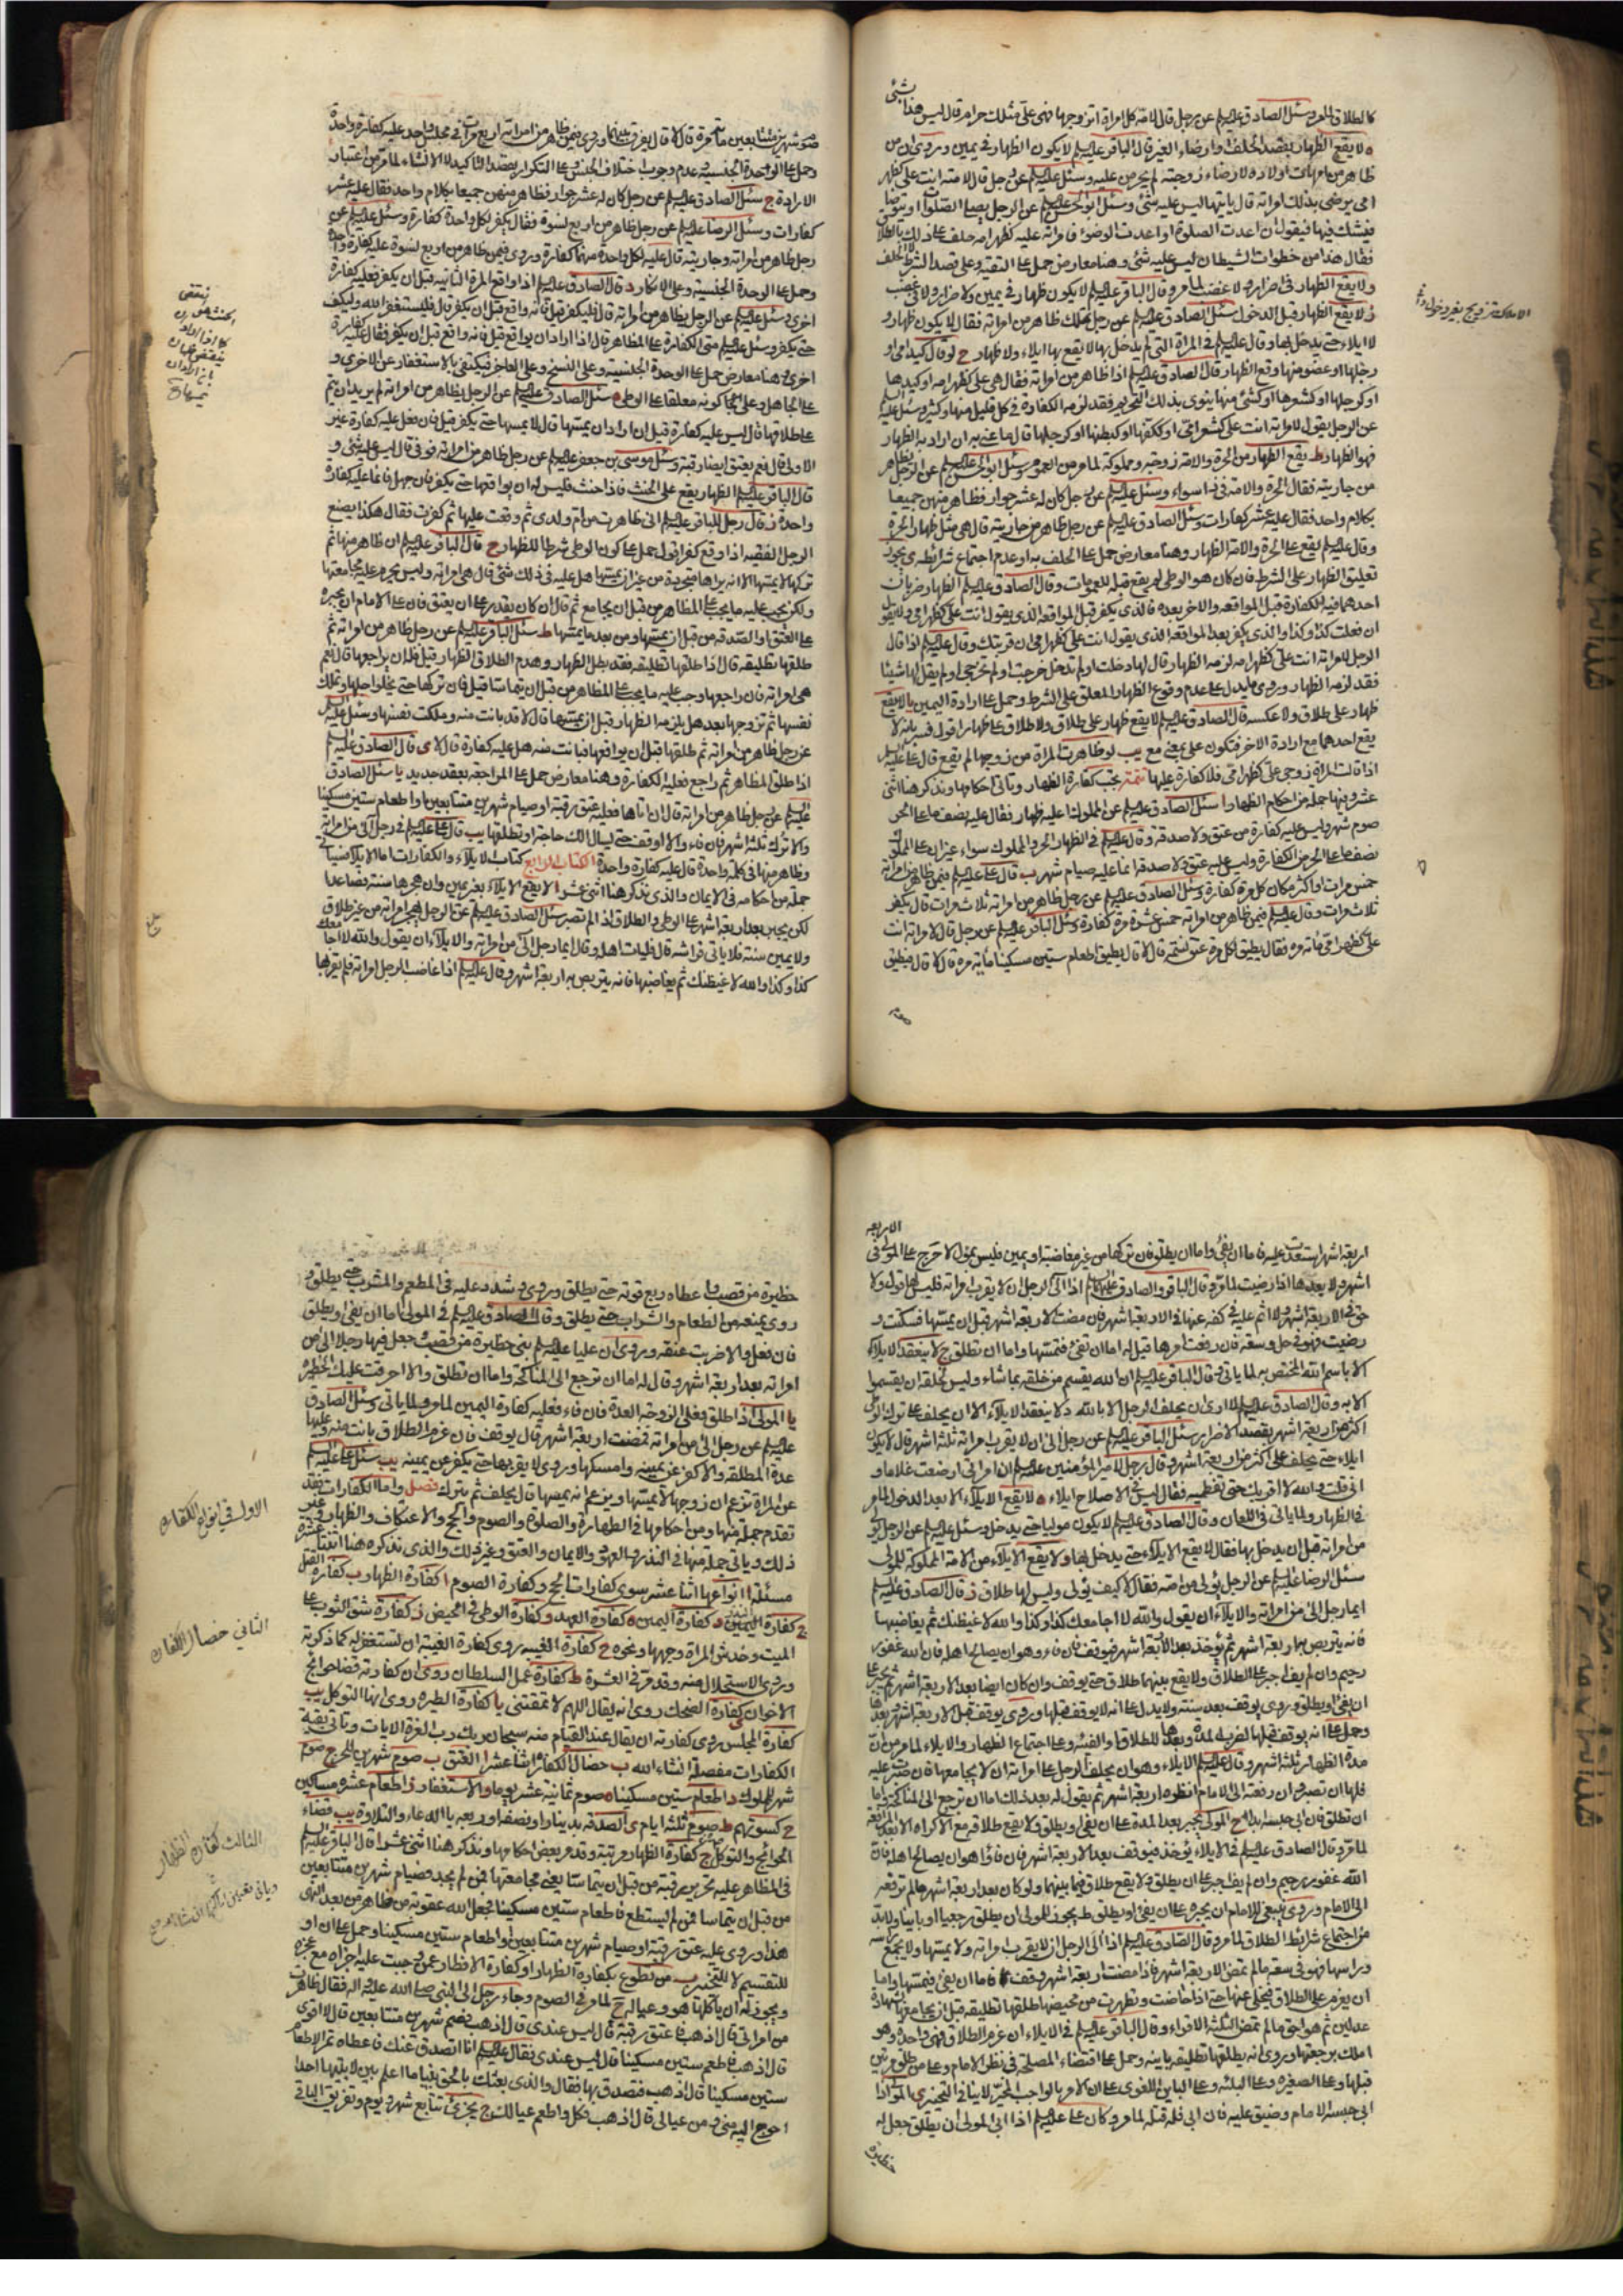 كالطلاق لما مر وسئل الصادق عليه السلم عن رجل قال لامه كل امراة اتزوجها فهى على مثلك حرام قال ليس هذا بشئ
ه لا يقع الظهار بقصد الحلف وارضاء الغير قال الباقر عليه السلم لا يكون الظهار فى يمين وروى ان من
ظاهر من امهات اولاده لارضاء زوجته لم يحرمن عليه وسئل عليه السلم عن رجل قال لامته انت على كظهر
امى يرضى بذلك امراته قال ياتيها ليس عليه شئ وسئل ابو الحسن عليه السلم عن الرجل يصلى الصلوة او يتوضا
فيشك فيها فيقول ان اعدت الصلوة او اعدت الوضوء فامراته عليه كظهر امه حلف على ذلك بالطلاق
فقال هذا من خطوات الشيطان ليس عليه شئ وهنا معارض حمل على التقية وعلى قصد الشرط لا الحلف
ولا يقع الظهار فى ضرار ولا غضب لما مر وقال الباقر عليه السلم لا يكون ظهار فى يمين ولا ضرار ولا فى غضب
ز لا يقع الظهار قبل الدخول سئل الصادق عليه السلم عن رجل مملك ظاهر من امراته فقال لا يكون ظهار و
لا ايلاء حتى يدخل بها وقال عليه السلم فى المراة التى لم يدخل بها لا يقع بها ايلاء ولا ظهار ح لو قال كيد امى او
رجلها او عضو منها وقع الظهار قال الصادق عليه السلم اذا ظاهر من امراته فقال هى على كظهر امه او كيدها
او كرجلها او كشعرها او كشئ منها ينوى بذلك التحريم فقد لزمه الكفارة فى كل قليل منها او كثير وسئل عليه السلم
عن الرجل يقول لامراته انت على كشعر امى او ككفها او كبطنها او كرجلها قال ما عنى به ان اراد به الظهار
فهو الظهار ط يقع الظهار من الحرة والامة زوجته ومملوكته لما مر من العموم وسئل ابو الحسن عليه السلم عن الرجل يظاهر
من جاريته فقال الحرة والامة فى ذا سواء وسئل عليه السلم عن رجل كان له عشر جوار فظاهر منهن جميعا
بكلام واحد فقال عليه عشر كفارات وسئل الصادق عليه السلم عن رجل ظاهر من جاريته قال هى مثل ظهار الحرة
وقال عليه السلم يقع على الحرة والامة الظهار وهنا معارض حمل على الحلف به او عدم اجتماع شرائطه ى يجوز
تعليق الظهار على الشرط فان كان هو الوطى لم يقع قبله للعمومات وقال الصادق عليه السلم الظهار ضربان
احدهما فيه الكفارة قبل المواقعه والاخر بعده فالذى يكفر قبل المواقعه الذى يقول انت على كظهر امى ولا يقول
ان فعلت كذا وكذا والذى يكفر بعد المواقعه الذى يقول انت على كظهر امى ان قربتك وقال عليه السلم اذا قال
الرجل لامراته انت على كظهر امه لزمه الظهار قال لها دخلت او لم تدخل خرجت او لم تخرجى او لم يقل لها شيئا
فقد لزمه الظهار وروى ما يدل على عدم وقوع الظهار المعلق على الشرط وحمل على ارادة اليمين يا لا يقع
ظهار على طلاق ولا عكسه قال الصادق عليه السلم لا يقع ظهار على طلاق ولا طلاق على ظهار اقول فسر بانه لا
يقع احدهما مع ارادة الاخر فتكون على بمعنى مع يب لو ظاهرت المراة من زوجها لم يقع قال على عليه السلم
اذا قالت المراة زوجى على كظهر امى فلا كفارة عليها تتمة يجب كفارة الظهار وتاتى احكامها ونذكر هنا اثنى
عشر وفيها جملة من احكام الظهار ا سئل الصادق عليه السلم عن المملوك اعليه ظهار فقال عليه نصف ما على الحر
صوم شهر وليس عليه كفارة من عتق ولا صدقة وقال عليه السلم فى الظهار الحر والمملوك سواء غير ان على المملوك
نصف ما على الحر من الكفارة وليس عليه عتق ولا صدقه انما عليه صيام شهر ب قال على عليه السلم فيمن ظاهر من امراته
خمس مرات او اكثر مكان كل مرة كفارة وسئل الصادق عليه السلم عن رجل ظاهر من امراته ثلاث مرات قال يكفر
ثلاث مرات وقال عليه السلم فيمن ظاهر من امراته خمس عشرة مرة كفارة وسئل الباقر عليه السلم عن رجل قال لامراته انت
على كظهر امى مائة مره فقال يطيق لكل مرة عتق نسمة قال لا قال يطيق اطعام ستين مسكينا مائة مره قال لا قال فيطيق
صوم
صوم شهرين متتابعين مائة مرة قال لا قال يفرق بينهما وروى فيمن ظاهر من امراته اربع مرات فى مجلس واحد عليه كفارة واحدة
وحمل على الوحدة الجنسية وعدم وجوب اختلاف الجنس وعلى التكرار بقصد التاكيد لا الانشاء لما مر من اعتبار
الارادة ج سئل الصادق عليه السلم عن رجل كان له عشر جوار فظاهر منهن جميعا بكلام واحد فقال عليه عشر
كفارات وسئل الرضا عليه السلم عن رجل ظاهر من اربع نسوة فقال يكفر لكل واحدة كفارة وسئل عليه السلم عن
رجل ظاهر من امراته وجاريته قال عليه لكل واحدة منهما كفارة وروى فيمن ظاهر من اربع نسوة عليه كفارة واحدة
وحمل على الوحدة الجنسية وعلى الانكار د قال الصادق عليه السلم اذا واقع المرة الثانيه قبل ان يكفر فعليه كفارة
اخرى وسئل عليه السلم عن الرجل يظاهر من امراته قال فليكفر قيل فانه واقع قبل ان يكفر قال فليستغفر الله وليكف
حتى يكفر وسئل عليه السلم متى الكفارة على المظاهر قال اذا اراد ان يواقع قيل فانه واقع قبل ان يكفر فقال عليه كفارة
اخرى وهنا معارض حمل على الوحدة الجنسية وعلى النسخ وعلى العاجز فيكتفى بالاستغفار عن الاخرى و
على الجاهل وعلى كونه معلقا على الوطى ه سئل الصادق عليه السلم عن الرجل يظاهر من امراته ثم يريد ان يتم
على طلاقها قال ليس عليه كفارة قيل ان اراد ان يمسها قال لا يمسها حتى يكفر قيل فان فعل عليه كفارة غير
الاولى قال نعم يعتق ايضا رقبة وسئل موسى بن جعفر عليه السلم عن رجل ظاهر من امراته فوفى قال ليس عليه شئ و
قال الباقر عليه السلم الظهار يقع على الحنث فاذا حنث فليس له ان يواقعها حتى يكفر فان جهل فانما عليه كفارة
واحدة ز قال رجل للباقر عليه السلم انى ظاهرت من ام ولدى ثم وقعت عليها ثم كفرت فقال هكذا يصنع
الرجل الفقيه اذا وقع كفر اقول حمل على كون الوطى شرطا للظهار ح قال الباقر عليه السلم ان ظاهر منها ثم
تركها لا يمسها الا انه يراها متجردة من غير ان يمسها هل عليه فى ذلك شئ قال هى امراته وليس يحرم عليه مجامعتها
ولكن يجب عليه ما يجب على المظاهر من قبل ان يجامع ثم قال ان كان يقدر على ان يعتق فان على الامام ان يجبره
على العتق والصدقه من قبل ان يمسها ومن بعد ما يمسها ط سئل الباقر عليه السلم عن رجل ظاهر من امراته ثم
طلقها تطليقه قال اذا طلقها تطليقه فقد بطل الظهار وهدم الطلاق الظهار قيل فله ان يراجعها قال نعم
هى امراته فان راجعها وجب عليه ما يجب على المظاهر من قبل ان يتماسا قيل فان تركها حتى يخلو اجلها وتملك
نفسها ثم تزوجها بعد هل يلزمه الظهار قبل ان يمسها قال لا قد بانت منه وملكت نفسها وسئل عليه السلم
عن رجل ظاهر من امراته ثم طلقها قبل ان يواقعها فبانت منه هل عليه كفارة قال لا ى قال الصادق عليه السلم
اذا طلق المظاهر ثم راجع فعليه الكفارة وهنا معارض حمل على المراجعة بعقد جديد يا سئل الصادق
عليه السلم عن رجل ظاهر من امراته قال ان اتاها فعليه عتق رقبة او صيام شهرين متتابعين او اطعام ستين مسكينا
والا ترك ثلثة اشهر فان فاء والا اوقف حتى يسال الك حاجة او تطلقها يب قال على عليه السلم فى رجل آلى من امراته
وظاهر منها فى كلمة واحدة قال عليه كفارة واحدة الكتاب الرابع كتاب الايلاء والكفارات اما الايلاء فياتى
جملة من احكامه فى الايمان والذى نذكر هنا اثنى عشر ا لا يقع الايلاء بغير يمين وان هجرها سنة فصاعدا
لكن يجبر بعد اربعة اشهر على الوطى والطلاق اذا لم تصبر سئل الصادق عليه السلم عن الرجل يهجر امراته من غير طلاق
ولا يمين سنة فلا ياتى فراشه قال ليات اهله وقال ايما رجل آلى من امراته والايلاء ان يقول والله لا اجامعك
كذا وكذا والله لاغيظنك ثم يغاضبها فانه يتربص به اربعة اشهر وقال عليه السلم اذا غاضب الرجل امراته فلم يقربها
اربعة اشهر استعدت عليه فاما ان يفئ واما ان يطلق فان تركها من غير مغاضبة او يمين فليس بمول لا حرج على المولى فى الاربعه
اشهر ولا بعدها اذا رضيت لما مر وقال الباقر والصادق عليهما السلم اذا آلى الرجل ان لا يقرب امراته فليس لها قول ولا
حق فى الاربعة اشهر ولا اثم عليه فى كفه عنها فى الاربعة اشهر فان مضت الاربعة اشهر قبل ان يمسها فسكتت و
رضيت فهو فى حل وسعة فان رفعت امرها قيل له اما ان تفئ فتمسها واما ان تطلق ج لا ينعقد الايلاء
الا باسم الله المختص به لما ياتى وقال الباقر عليه السلم ان الله يقسم من خلقه بما شاء وليس لخلقه ان يقسموا
الا به وقال الصادق عليه السلم لا ارى ان يحلف الرجل الا بالله د لا ينعقد الايلاء الا ان يحلف على ترك الوطى
اكثر من اربعة اشهر بقصد الاضرار سئل الباقر عليه السلم عن رجل آلى ان لا يقرب امراته ثلثة اشهر قال لا يكون
ايلاء حتى يحلف على اكثر من اربعة اشهر وقال رجل لامير المؤمنين عليه السلم ان امراتى ارضعت غلاما و
انى قلت والله لا اقربك حتى تفطميه فقال ليس فى الاصلاح ايلاء ه لا يقع الايلاء الا بعد الدخول لما مر
فى الظهار ولما ياتى فى اللعان وقال الصادق عليه السلم لا يكون موليا حتى يدخل وسئل عليه السلم عن الرجل يولى
من امراته قبل ان يدخل بها فقال لا يقع الايلاء حتى يدخل بها و لا يقع الايلاء من الامة المملوكة للمولى
سئل الرضا عليه السلم عن الرجل يولى من امته فقال لا كيف يولى وليس لها طلاق ز قال الصادق عليه السلم
ايما رجل آلى من امراته والايلاء ان يقول والله لا اجامعك كذا وكذا والله لاغيظنك ثم يغاضبها
فانه يتربص بها اربعة اشهر ثم يؤخذ بعد الاربعة اشهر فيوقف فان فاء وهو ان يصالح اهله فان الله غفور
رحيم وان لم يفئ اجبر على الطلاق ولا يقع بينهما طلاق حتى يوقف وان كان ايضا بعد الاربعة اشهر ثم يجبر على
ان يفئ او يطلق وروى يوقف بعد سنة ولا يدل على انه لا يوقف قبلها وروى يوقف قبل الاربعة اشهر وبعدها
وحمل على انه يوقف قبلها لضرب المدة وبعدها للطلاق او الفئه وعلى اجتماع الظهار والايلاء لما مر من ان
مدة الظهار ثلثة اشهر وقال عليه السلم الايلاء هو ان يحلف الرجل على امراته ان لا يجامعها فان صبرت عليه
فلها ان تصبر وان رفعته الى الامام انظره اربعة اشهر ثم يقول له بعد ذلك اما ان ترجع الى المناكحة واما
ان تطلق فان ابى حبسه ابدا ح المولى يجبر بعد المدة على ان يفئ او يطلق ولا يقع طلاقه مع الاكراه الا بعد المرافعة
لما مر وقال الصادق عليه السلم فى الايلاء يؤخذ فيوقف بعد الاربعة اشهر فان فاء وهو ان يصالح اهله فان
الله غفور رحيم وان لم يفئ جبر على ان يطلق ولا يقع طلاق فيما بينهما ولو كان بعد اربعة اشهر ما لم ترفعه
الى الامام وروى ينبغى للامام ان يجبره على ان يفئ او يطلق ط يجوز للمولى ان يطلق رجعيا او باينا ولا بد
من اجتماع شرائط الطلاق لما مر وقال الصادق عليه السلم اذا آلى الرجل ان لا يقرب امراته ولا يمسها ولا يجمع راسه
وراسها فهو فى سعة ما لم تمض الاربعة اشهر فاذا مضت اربعة اشهر وقف فاما ان يفئ فيمسها واما
ان يعزم على الطلاق فيخلى عنها حتى اذا حاضت وتطهرت من محيضها طلقها تطليقه قبل ان يجامعها بشهادة
عدلين ثم هو احق بها ما لم تمض الثلثة الاقراء وقال الباقر عليه السلم فى الايلاء ان عزم الطلاق فهى واحده وهو
املك برجعتها وروى انه يطلقها تطليقه باينه وحمل على اقتضاء المصلحة فى نظر الامام وعلى من طلق مرتين
قبلها وعلى الصغيره وعلى الباين اللغوى على ان الامر بالواجب المخير لا ينافى التخيير ى المولى اذا
ابى حبسه الامام وضيق عليه فان ابى فله قتله لما مر وكان على عليه السلم اذا ابى المولى ان يطلق جعل له
حظيرة
حظيرة من قصب واعطاه ربع قوته حتى يطلق وروى يشدد عليه فى المطعم والمشرب حتى يطلق و
روى يمنعه من الطعام والشراب حتى يطلق وقال الصادق عليه السلم فى المولى اما ان يفئ او يطلق
فان فعل والا ضربت عنقه وروى ان عليا عليه السلم بنى حظيرة من قصب وجعل فيها رجلا آلى من
امراته بعد اربعة اشهر وقال له اما ان ترجع الى المناكحة واما ان تطلق والا احرقت عليك الحظيره
يا المولى اذا طلق فعلى الزوجة العدة فان فاء فعليه كفارة اليمين لما مر ولما ياتى وسئل الصادق
عليه السلم عن رجل آلى من امراته فمضت اربعة اشهر قال يوقف فان عزم الطلاق بانت منه وعليها
عدة المطلقه والا كفر عن يمينه وامسكها وروى لا يقربها حتى يكفر عن يمينه يب سئل على عليه السلم
عن المراة تزعم ان زوجها لا يمسها ويزعم انه يمسها قال يحلف ثم يترك فصل واما الكفارات فقد
تقدم جملة منها ومن احكامها فى الطهارة والصلوة والصوم والحج والاعتكاف والظهار وغير
ذلك وياتى جملة منها فى النذر والعهد والايمان والعتق وغير ذلك والذى نذكره هنا اثنتا عشرة
مسئلة ا انواعها اثنا عشر سوى كفارات الحج وكفارة الصوم ا كفارة الظهار ب كفارة القتل
ج كفارة اليمين د كفارة اليمين ه كفارة العهد و كفارة الوطى فى الحيض ز كفارة شق الثوب على
الميت وخدش المراة وجهها ونحوه ح كفارة الغيبة روى كفارة الغيبة ان تستغفر له كما ذكرته
وروى الاستحلال منه وقد مر فى العشرة ط كفارة عمل السلطان روى ان كفارته قضاء حوائج
الاخوان ى كفارة الضحك روى انه يقال اللهم لا تمقتنى يا كفارة الطيره روى انها التوكل يب
كفارة المجلس روى كفارته ان يقال عند القيام منه سبحان ربك رب العزة الايات وتاتى بقية
الكفارات مفصلة انشاء الله ب خصال الكفارة اثنا عشر ا العتق ب صوم شهرين للحر ج صوم
شهر للمملوك د اطعام ستين مسكينا ه صوم ثمانية عشر يوما و الاستغفار ز اطعام عشرة مساكين
ح كسوتهم ط صوم ثلثة ايام ى الصدقة بدينار او نصفه او ربعه يا الدعاء والتلاوة يب قضاء
الحوائج والتوكل ج كفارة الظهار مرتبة وقد مر بعض احكامها ونذكر هنا اثنى عشر ا قال الباقر عليه السلم
فى المظاهر عليه تحرير رقبة من قبل ان يتماسا يعنى مجامعتها فمن لم يجد فصيام شهرين متتابعين
من قبل ان يتماسا فمن لم يستطع فاطعام ستين مسكينا فجعل الله عقوبة من ظاهر من بعد النهى
هذا وروى عليه عتق رقبة او صيام شهرين متتابعين او اطعام ستين مسكينا وحمل على ان او
للتقسيم لا للتخيير ب من تطوع بكفارة الظهار او كفارة الافطار عمن وجبت عليه اجزاه مع عجزه
ويجوز له ان ياكلها هو وعياله ج لما مر فى الصوم وجاء رجل الى النبى صلى الله عليه وآله فقال ظاهرت
من امراتى قال اذهب فاعتق رقبة قال ليس عندى قال اذهب فصم شهرين متتابعين قال لا اقوى
قال اذهب فاطعم ستين مسكينا قال ليس عندى فقال عليه السلم انا اتصدق عنك فاعطاه تمرا لاطعام
ستين مسكينا قال اذهب فتصدق بها فقال والذى بعثك بالحق نبيا ما اعلم بين لابتيها احدا
احوج اليه منى ومن عيالى قال اذهب فكل واطعم عيالك ج يجزئ تتابع شهر ويوم وتفريق الباقى
الاول فى انواع الكفارة
الثانى خصال الكفارة
الثالث كفارة الظهار